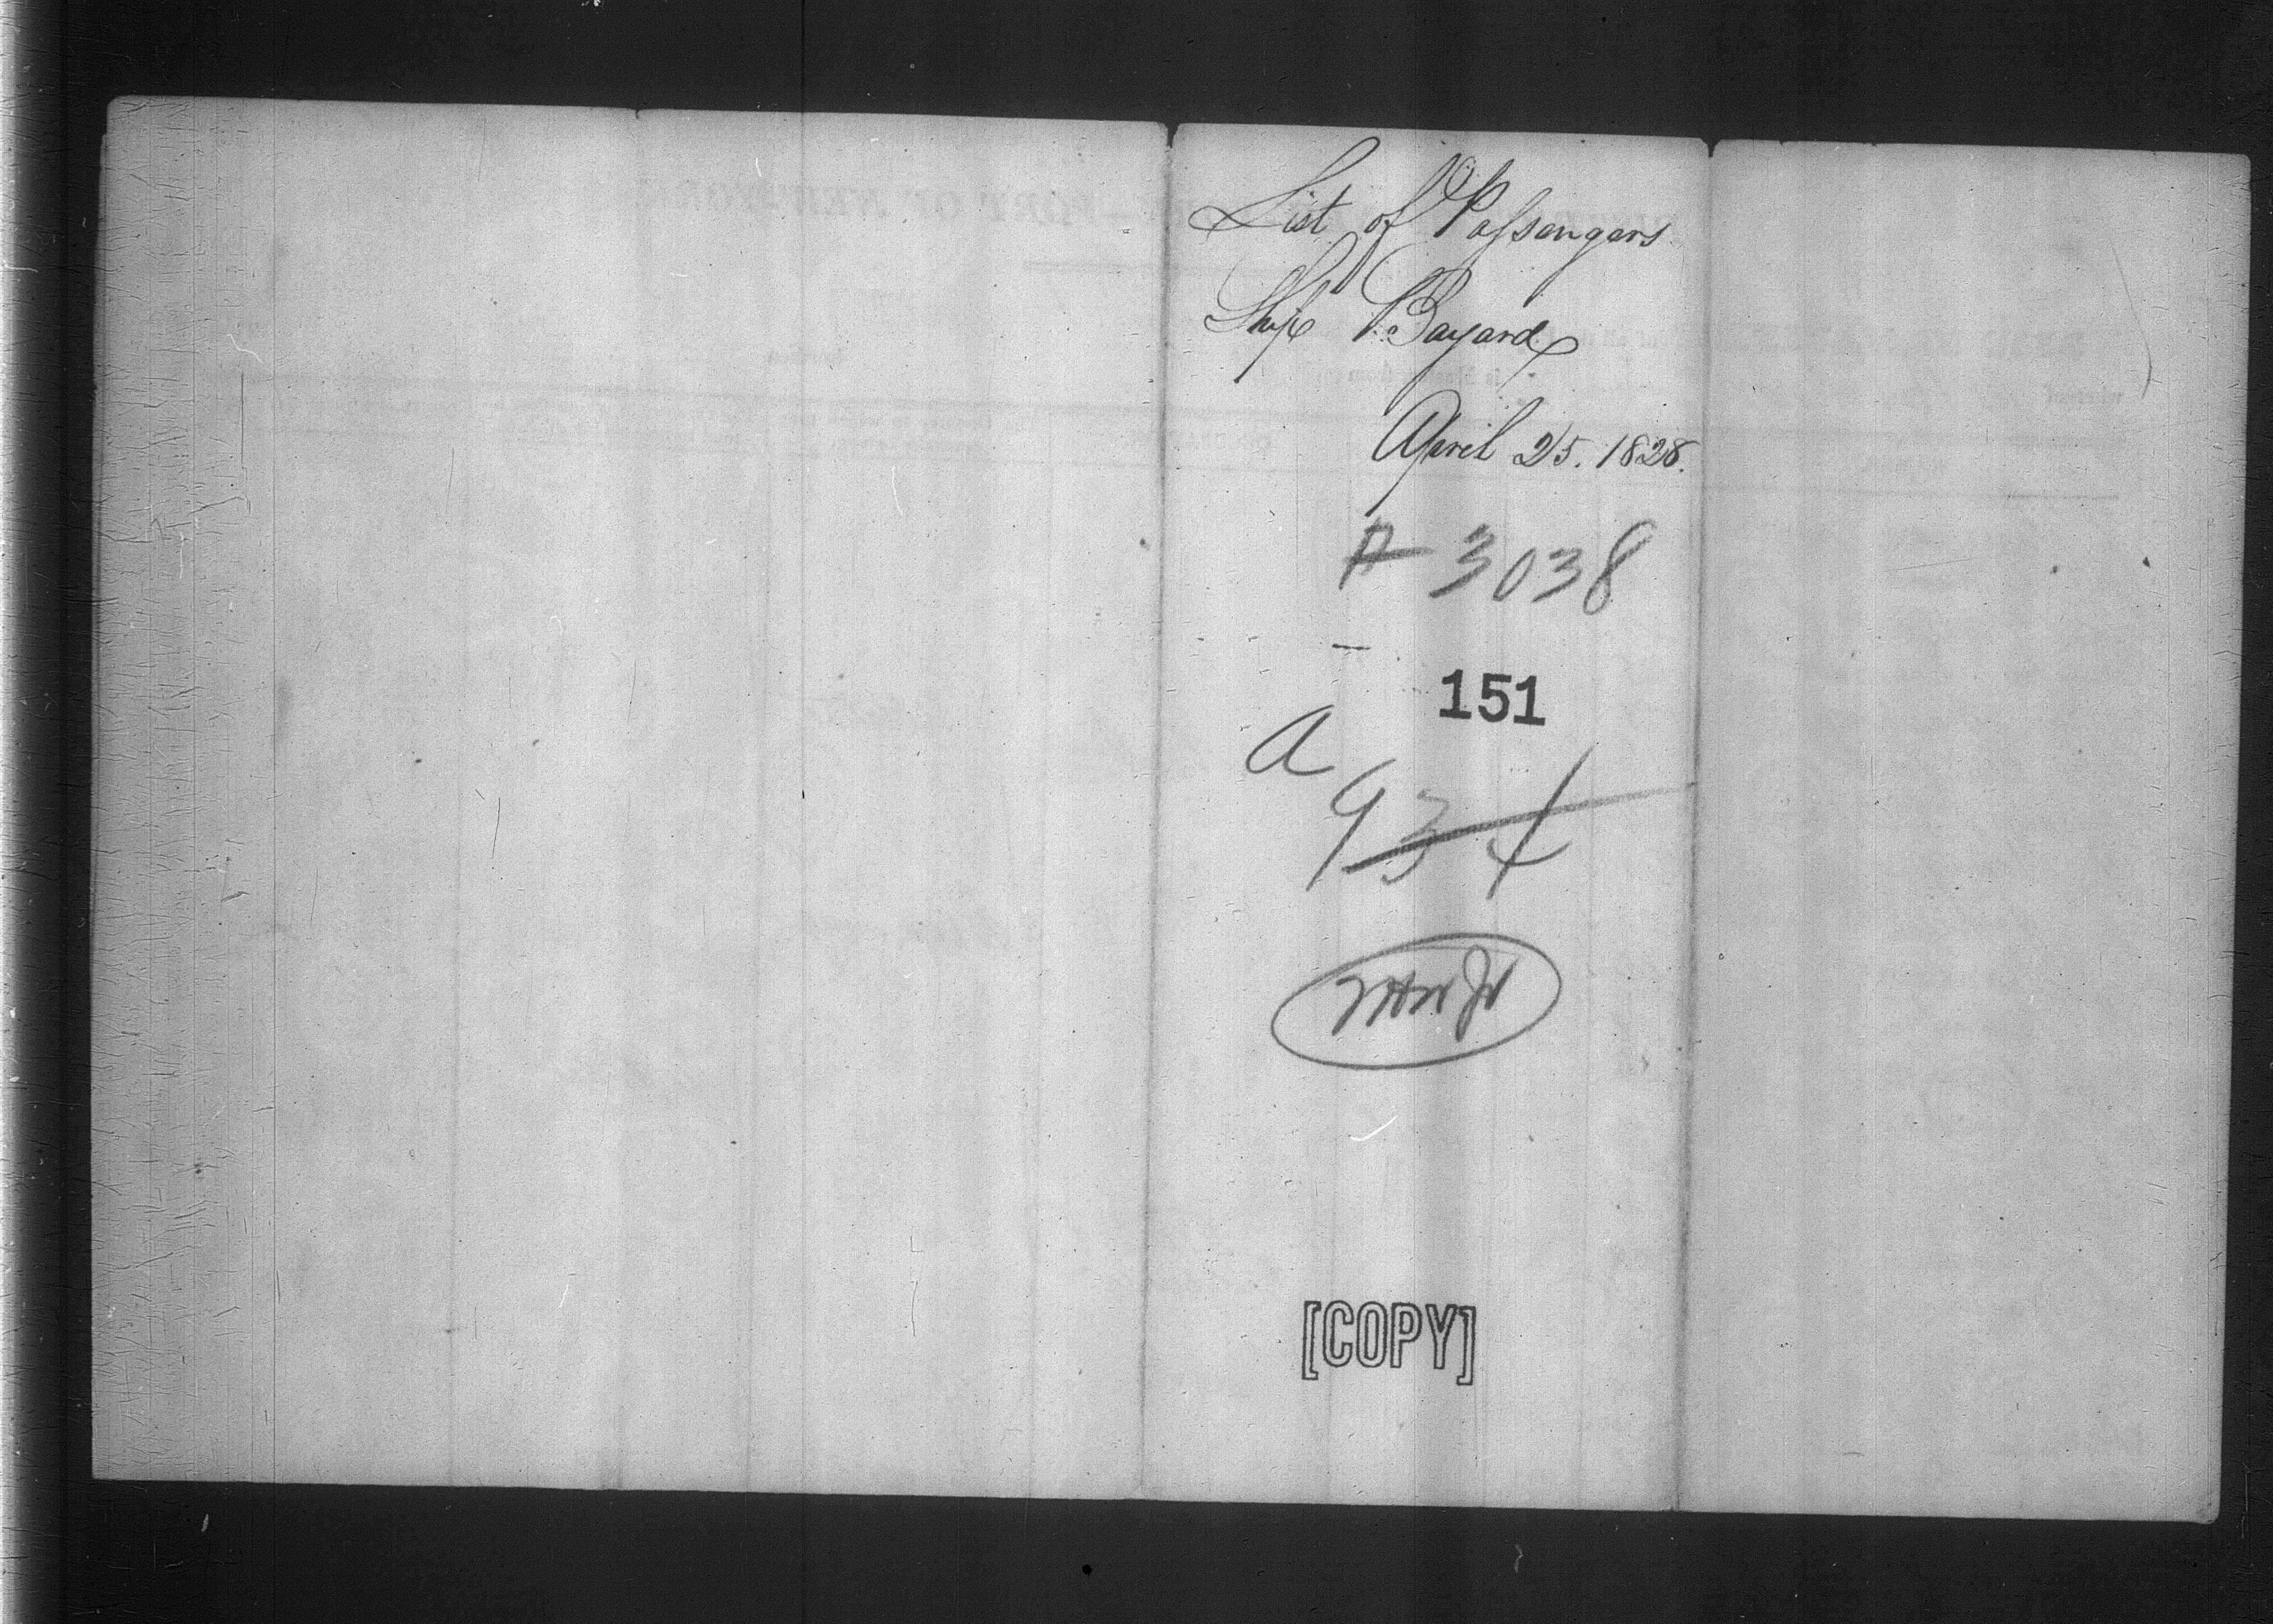 List of Passengers
Ship Bayard
April 25. 1828.
A 3038
151
a
934
[COPY]